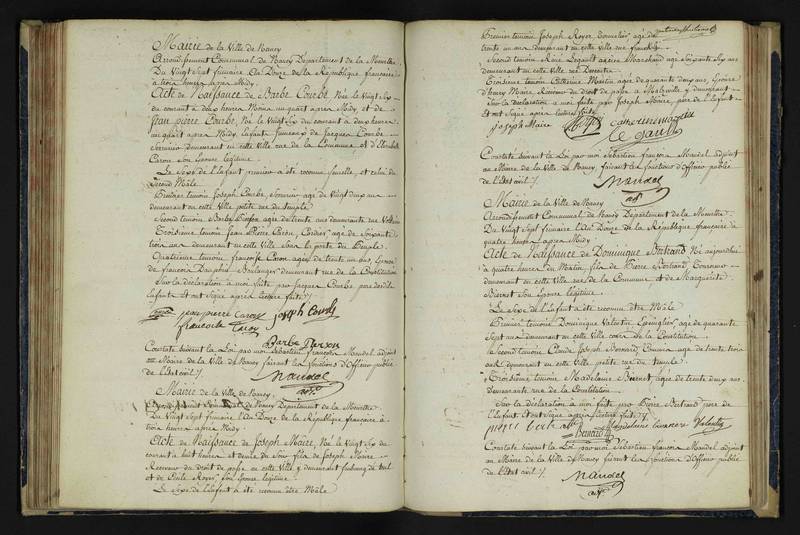 Mairie de la Ville de Nancy
Arrondissement Communal de Nancy Département de la Meurthe
Du Vingt Sept frimaire L'an Douze de la République française
à trois heures après Midy
Acte de Naissance de Barbe Courbe Née le Vingt Six
du courant à deux heures Moins un quart après Midy et de
Jean pierre Courbe, Né le Vingt Six du courant à deux heures
un quart après Midy, Enfants jumeaux de Jacques Courbe
Serrurier demeurant en cette Ville rue de la Commune et d'
Caron Son Epouse légitime
Le Sexe de l'Enfant premier a été reconnu femelle, et celui du
Second Mâle
Premier temoin Joseph Courbe, Serrurier agé de Vingt deux ans
demeurant en cette Ville petite rue du temple
Second temoin Barbe agée de trente ans demeurante rue
Troisième temoin Jean Pierre Caron, Cordier agé de Soixante
trois ans demeurant en cette Ville Sous la porte du Peuple
Quatrieme temoin françoise Caron agée de trente un ans, Epouse
de francois Dauphin Boulanger demeurant rue de la Constitution
Sur la déclaration à moi faite par Jacques Courbe pere desdits
Enfants et ont Signé après lecture faite /.
jean pierre caron joseph Courbe
francoise Caron
Barbe
Constaté Suivant la Loi par moi Sébastien françois Mandel adjoint
au Maire de la Ville de Nancy faisant les fonctions d'Officier public
de l'Etat civil /.
Mandel
adjt
Mairie de la Ville de Nancy
de Nancy Département de la Meurthe
Du Vingt Sept frimaire l'an Douze de la République française à
trois heures après Midy
Acte de Naissance de Joseph Maire, Né le Vingt Six du
courant à huit heures et demie du Soir fils de Joseph Maire
Receveur du droit de passe en cette Ville y demeurant faubourg de
et de Royer, Son Epouse légitime
Le Sexe de l'Enfant a été reconnu être Mâle
Premier temoin Joseph Royer, agé de
trente un ans demeurant en cette Ville rue
Second temoin René Legault ancien Marchand agé Soixante Six ans
demeurant en cette Ville rue
Troisieme temoin Catherine Martin agée de quarante deux ans, Epouse
d'henry Maire Receveur du Droit de passe à Malzéville y demeurant
Sur la déclaration à moi faite par Joseph Maire, pere de l'Enfant
Et ont Signé après lecture faite
Joseph Maire catherine martin
le gault
Constaté Suivant la Loi par moi Sébastien françois Mandel adjoint
au Maire de la Ville de Nancy, faisant les fonctions d'Officier public
de l'Etat civil /.
Mandel
adjt
Mairie de la Ville de Nancy
Arrondissement Communal de Nancy Département de la Meurthe
Du Vingt Sept frimaire L'an Douze de la République française à
quatre heures après Midy
Acte de Naissance de Dominique Bertrand Né aujourd'hui
à quatre heures du Matin, fils de Pierre Bertrand
demeurant en cette Ville rue de la Commune et de Marguerite
Son Epouse légitime
Le Sexe de l'Enfant a été reconnu être Mâle
Premier temoin Dominique Valentin Epinglier, agé de quarante
Sept ans demeurant en cette Ville cour de la Constitution
Le Second temoin Claude Joseph Bernard, agé de trente trois
ans demeurant en cette Ville petite rue du
Troisieme temoin Madelaine agée de trente deux ans
demeurante rue de la Constitution
Sur la déclaration à moi faite par Pierre Bertrand pere de
l'Enfant et ont Signé après lecture faite /.
Bernard Magdelaine Valentin
Constaté Suivant la Loi par moi Sébastien françois Mandel adjoint
au Maire de la Ville de Nancy faisant les fonctions d'Officier public
de l'Etat civil /.
Mandel
adjt